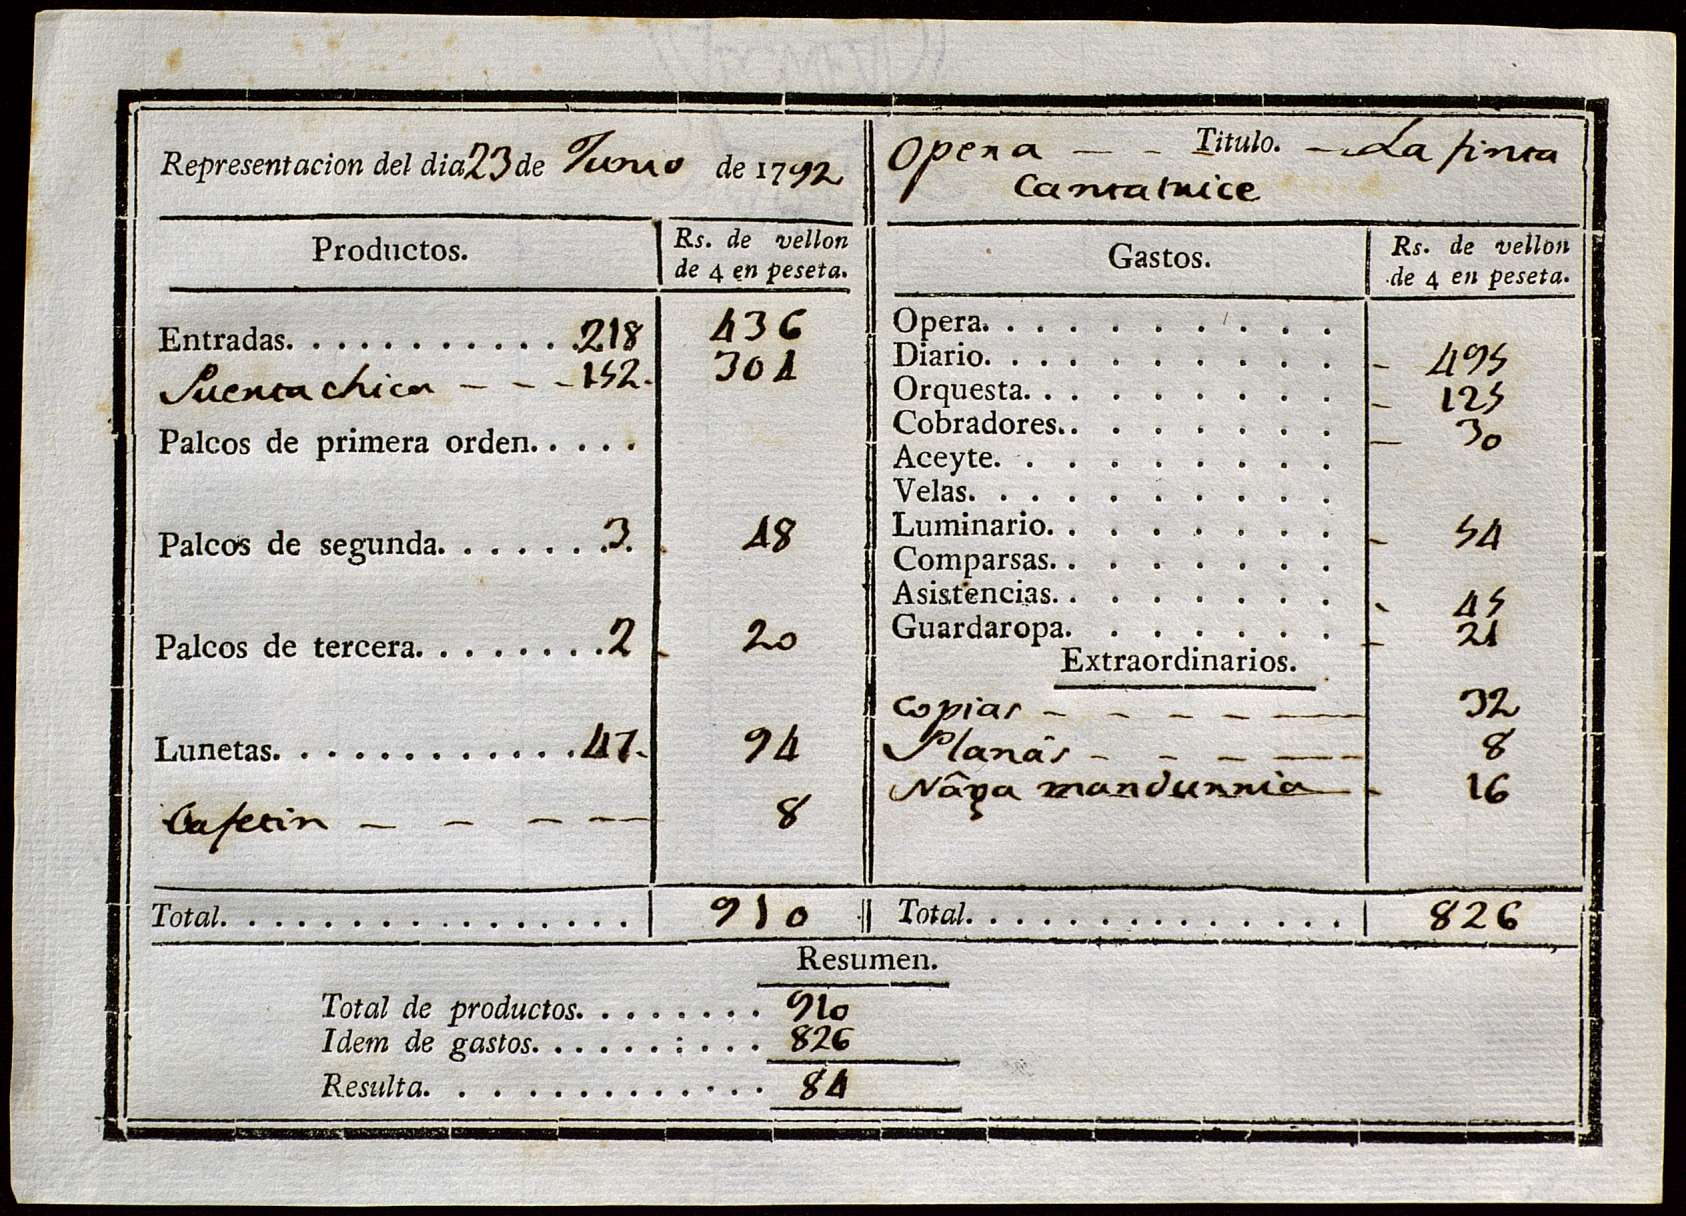 Representacion del dia 23 de Junio de 1792
Productos. Rs. de vellon de 4 en peseta.
Entradas. 218 436
Puerta chica - - - 152. 304
Palcos de primera orden.
Palcos de segunda. 3. 48
Palcos de tercera. 2 20
Lunetas. 47. 94
Cafetin - - - - 8
Total. 910
Opera - - Titulo. - La finta
Cantatrice
Gastos. Rs. de vellon de 4 en peseta.
Opera.
Diario. - 495
Orquesta. - 125
Cobradores. - 30
Aceyte.
Velas.
Luminario. - 54
Comparsas.
Asistencias. - 45
Guardaropa. - 21
Extraordinarios.
Copias - - - - - 32
Planâs - - - - 8
mandurria - 16
Total. 826
Resumen.
Total de productos. 910
Idem de gastos. 826
Resulta. 84